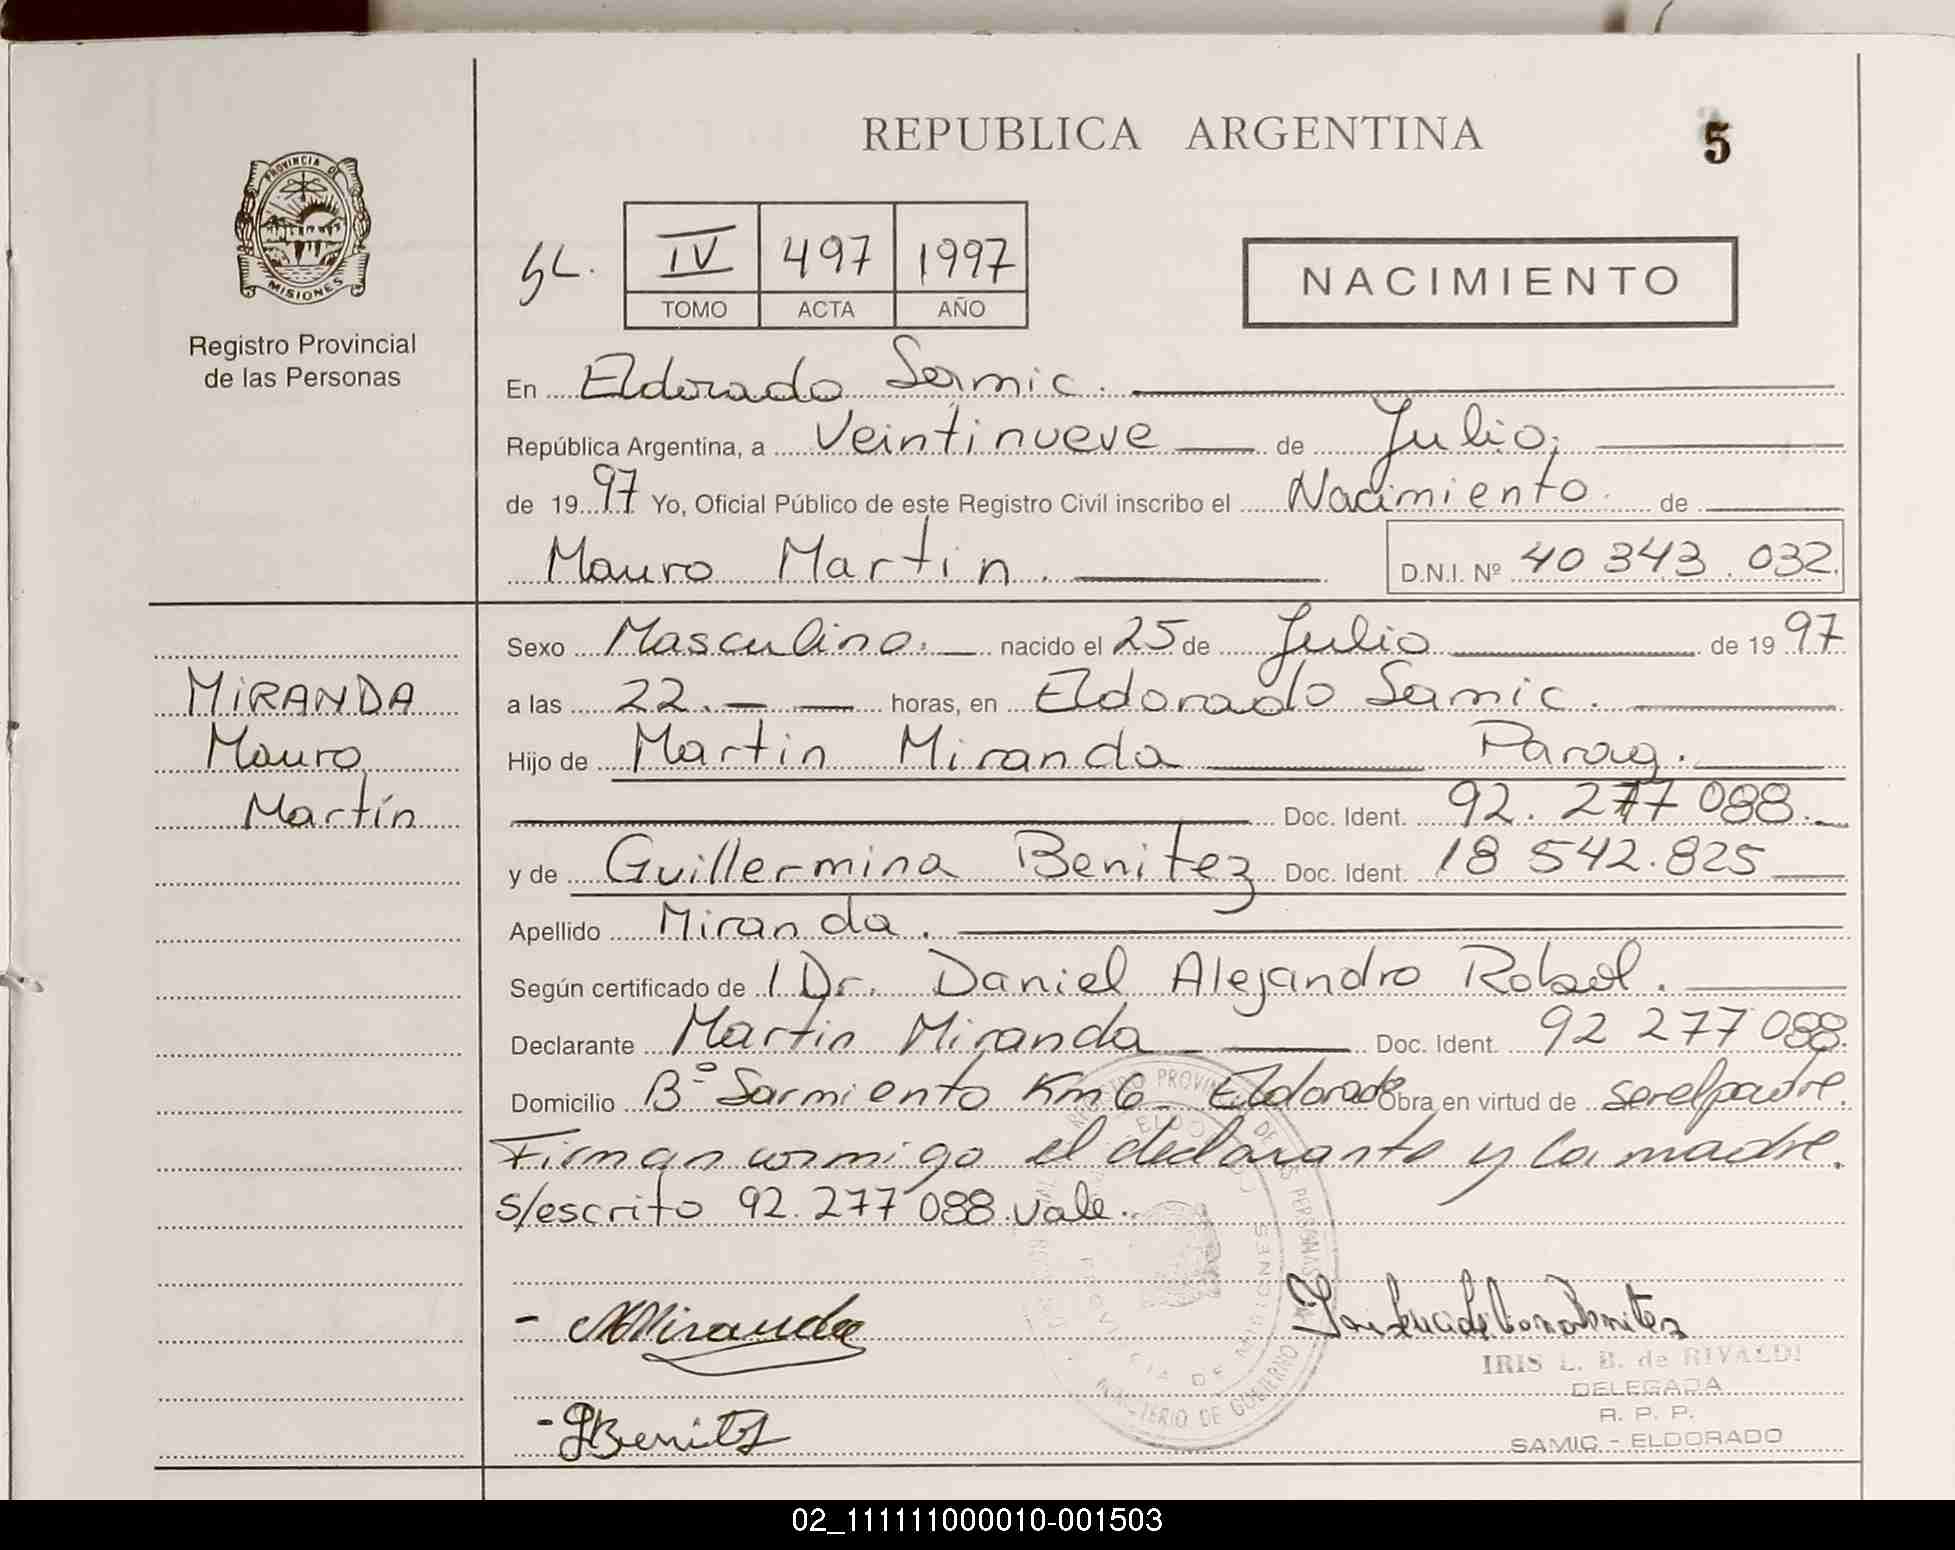 REPUBLICA ARGENTINA
5
PROVINCIA DE
MISIONES
Registro Provincial
de las Personas
IV 497 1997
TOMO ACTA AÑO
NACIMIENTO
En Eldorado Samic.
República Argentina, a Veintinueve de Julio,
de 1997 Yo, Oficial Público de este Registro Civil inscribo el Nacimiento. de
Mauro Martin. D.N.I. Nº 40 343.032.
Sexo Masculino. nacido el 25 de Julio de 1997
MIRANDA
Mauro
Martín
a las 22. horas, en Eldorado Samic.
Hijo de Martin Miranda Parag.
Doc. Ident. 92.277 088.
y de Guillermina Benitez Doc. Ident. 18 542.825
Apellido Miranda.
Según certificado de l Dr. Daniel Alejandro
Declarante Martin Miranda Doc. Ident. 92 277 088.
Domicilio Bº Sarmiento Km 6 Eldorado Obra en virtud de ser el padre.
Firman conmigo el declarante y la madre.
s/escrito 92.277 088. vale.
MMiranda
GBenitez
IRIS L. B. de RIVALDI
DELEGADA
R. P. P.
SAMIC - ELDORADO
MINISTERIO DE GOBIERNO
PROVINCIA DE MISIONES
02_111111000010-001503